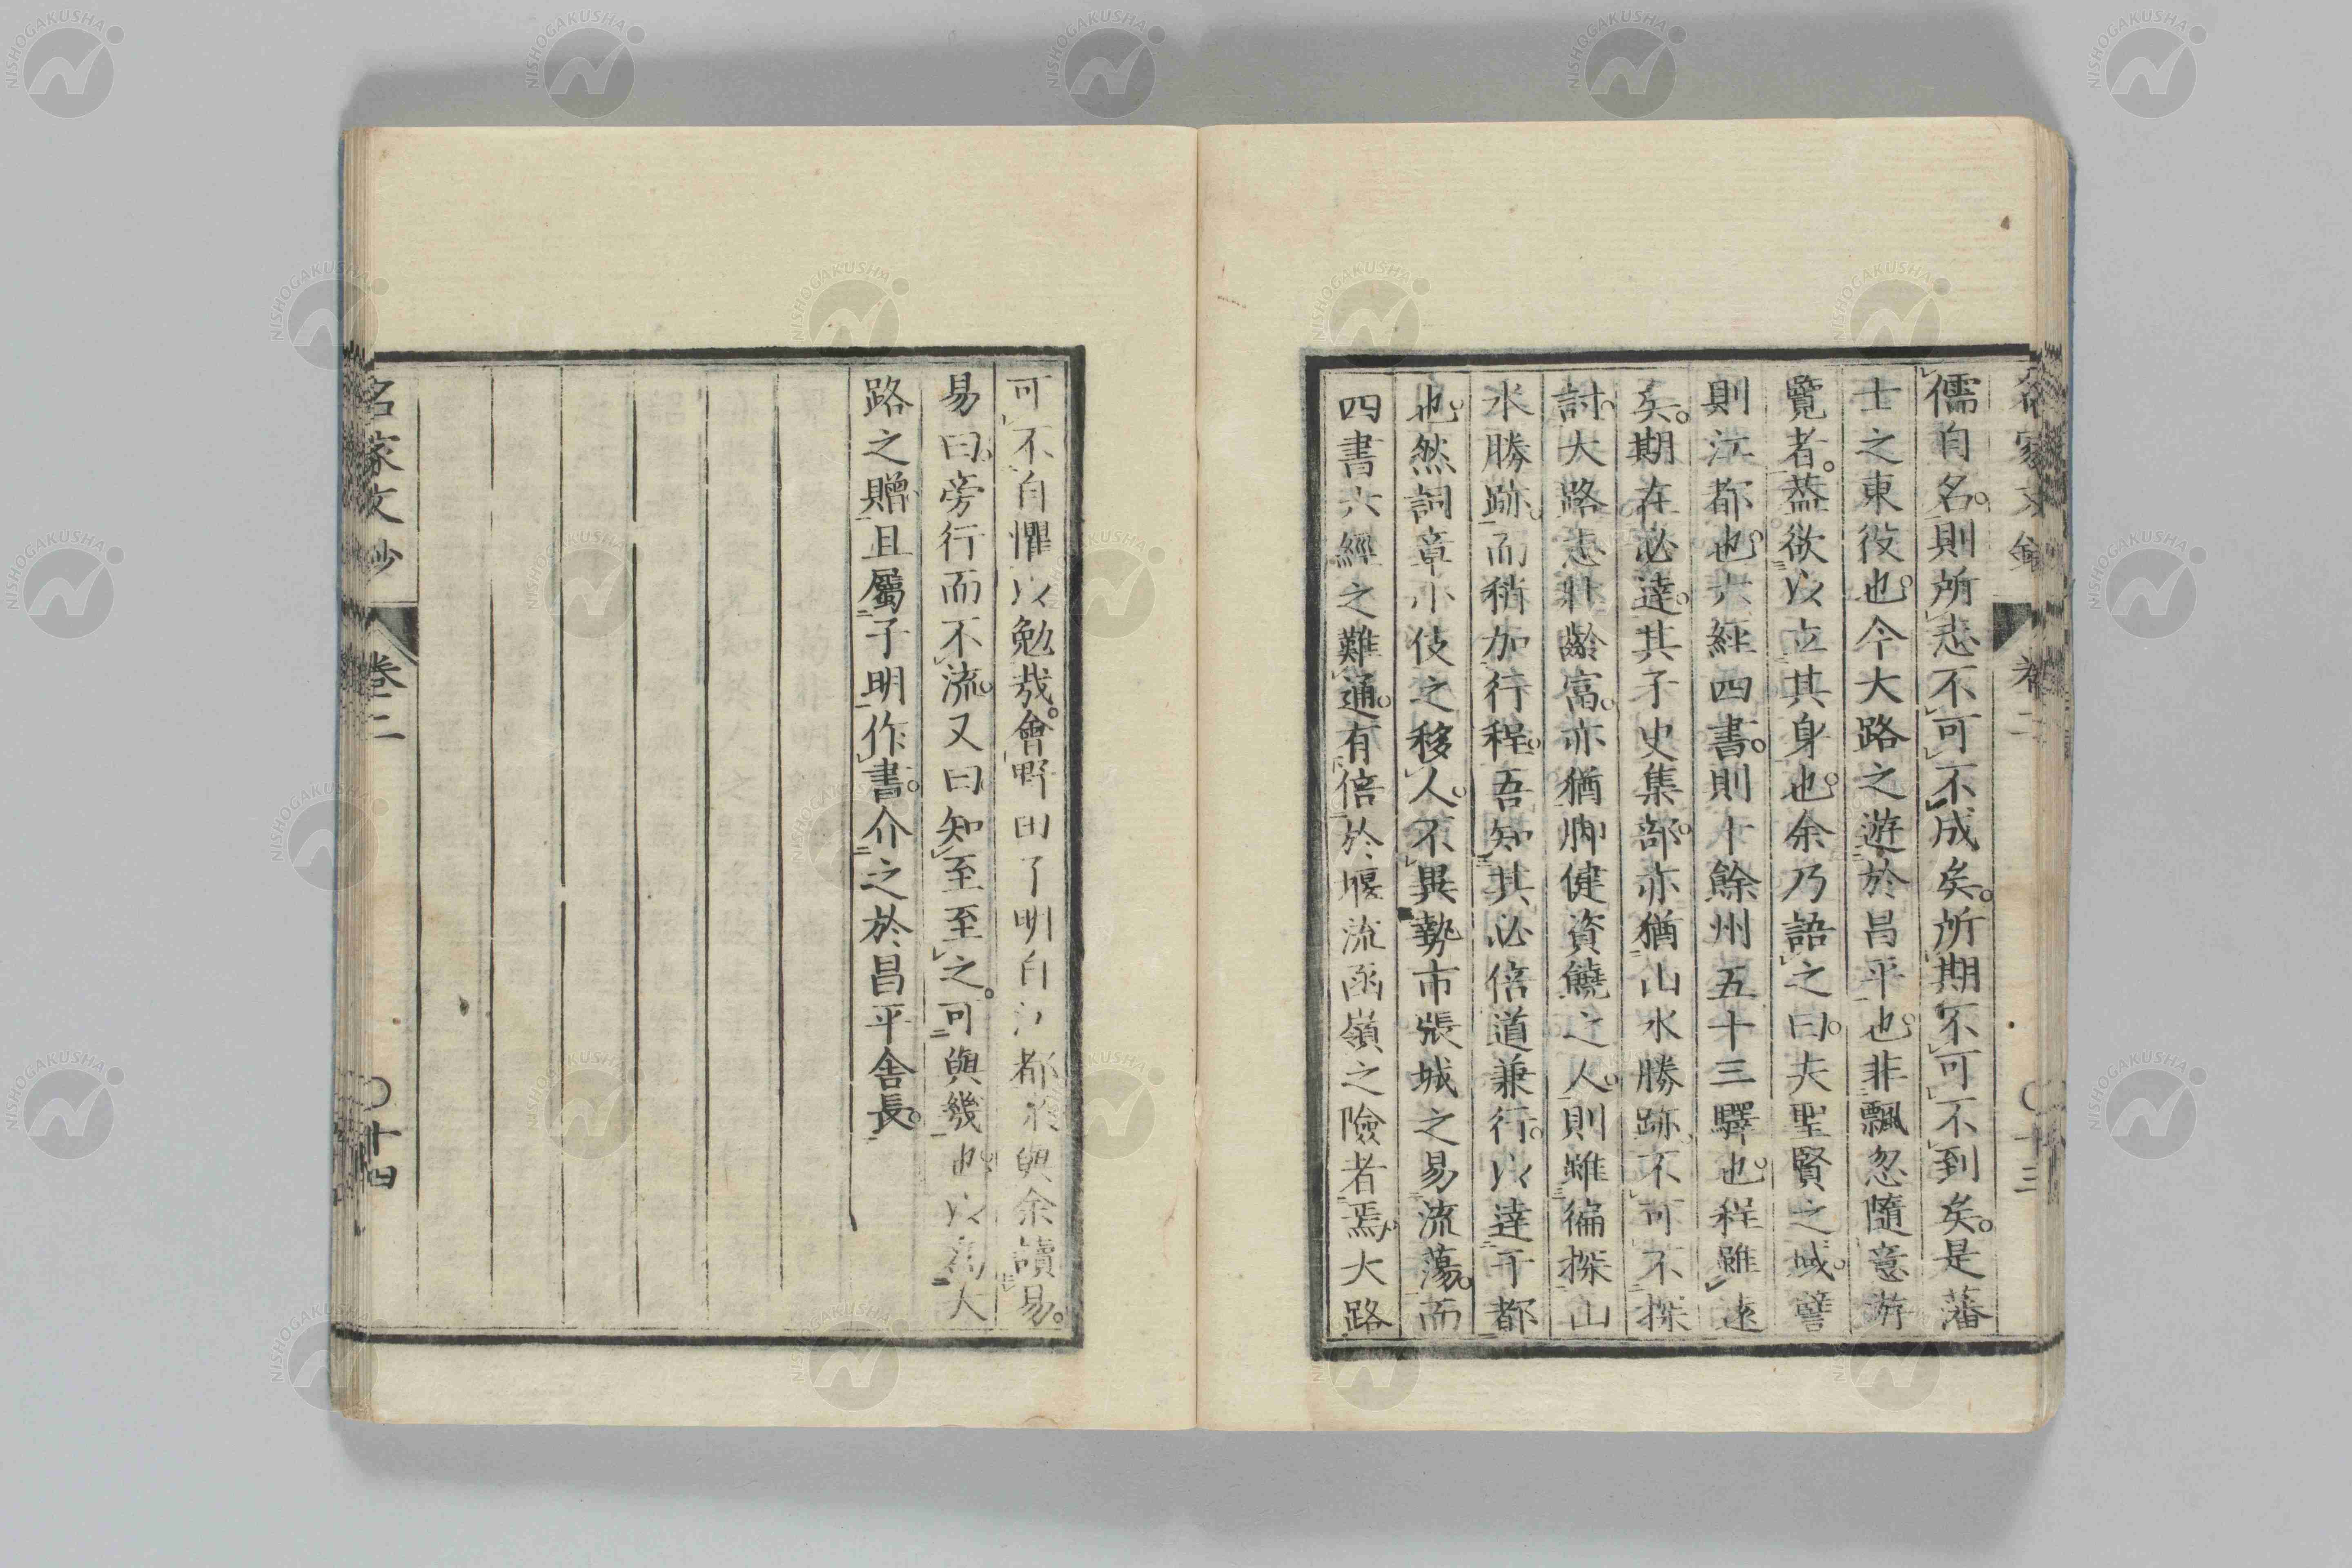 儒自名。則所志不可不成矣。所期不可不到矣。是藩
士之東役也。今大路之遊於昌平也。非飄忽隨意游
覽者。葢欲以立其身也。余乃語之曰。夫聖賢之域。譬
則江都也。六經四書。則十餘州五十三驛也。程雖遠
矣。期在必達。其子史集部。亦猶山水勝跡。不可不探
討。大路志壯齡富。亦猶脚健資饒之人。則雖徧探山
水勝跡。而稍加行程。吾知其必倍道兼行。以達于都
也。然詞章小伎之移人。不異勢市張城之易流蕩。而
四書六經之難通。有倍於堰流函嶺之險者焉。大路
可不自懼以勉哉。會野田子明自江都來與余讀易。
易曰。旁行而不流。又曰知至至之。可與幾也。以爲大
路之贈。且屬子明作書。介之於昌平舍長。
名家文抄
卷二
〇十三
名家文抄
卷二
〇十四
NISHOGAKUSHA